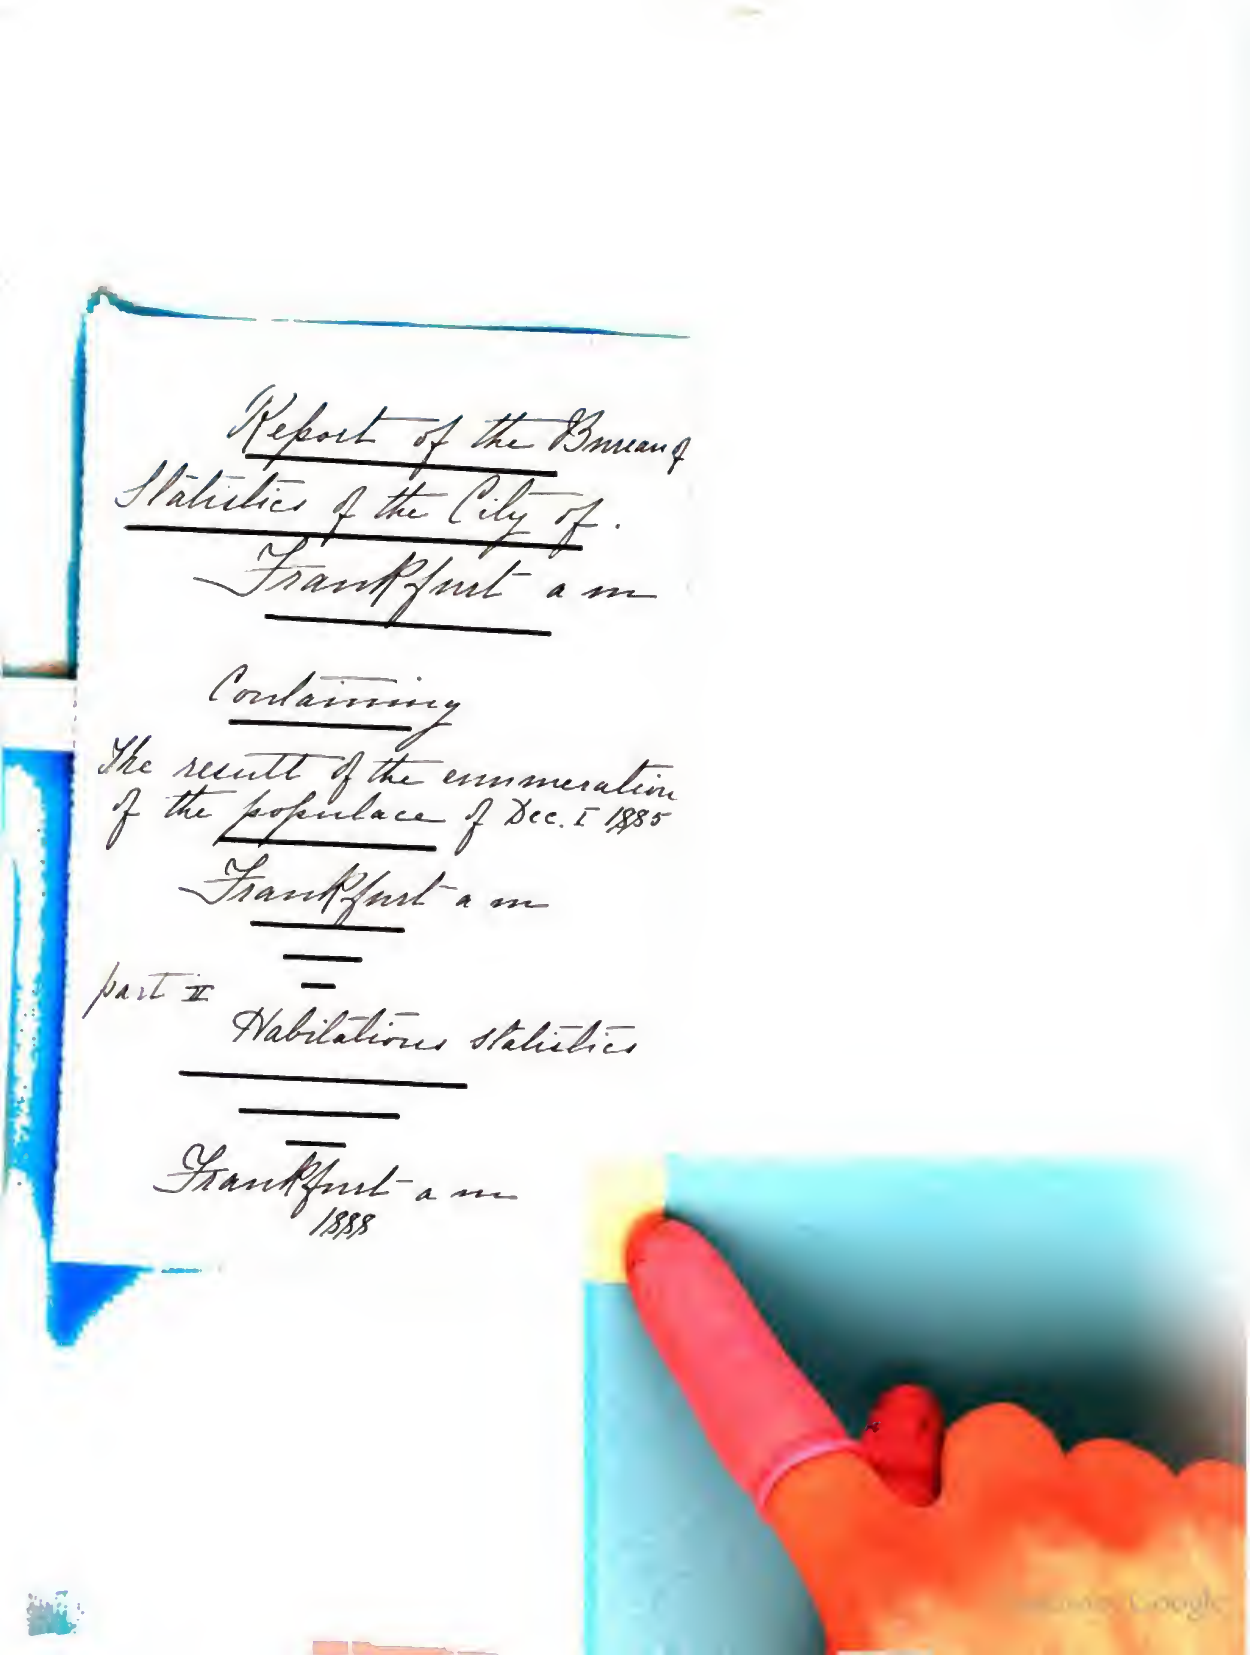 Report of the Bureau of
Statistics of the City of.
Frankfurt a m
Containing
The result of the enumeration
of the populace of Dec. I 1885
Frankfurt a m
part II
Habitations statistics
Frankfurt a m
1888
Google